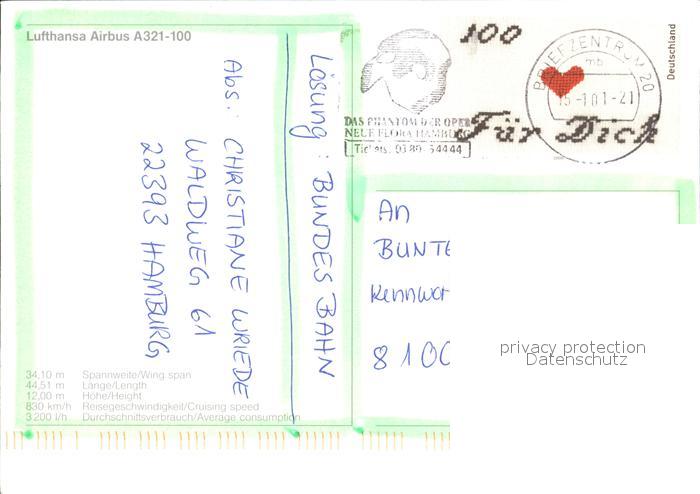 Lufthansa Airbus A321-100
Lösung: BUNDES BAHN
Abs.: CHRISTIANE WRIEDE
WALDWEG 61
22393 HAMBURG
34,10 m Spannweite/Wing span
44,51 m Länge/Length
12,00 m Höhe/Height
830 km/h Reisegeschwindigkeit/Cruising speed
3200 l/h Durchschnittsverbrauch/Average consumption
100
Für Dich
Deutschland
DAS PHANTOM DER OPER
NEUE FLORA HAMBURG
Tickets:
BRIEFZENTRUM 20
mb
-1.01-21
An
BUNTE
Kennwor
8100
privacy protection
Datenschutz